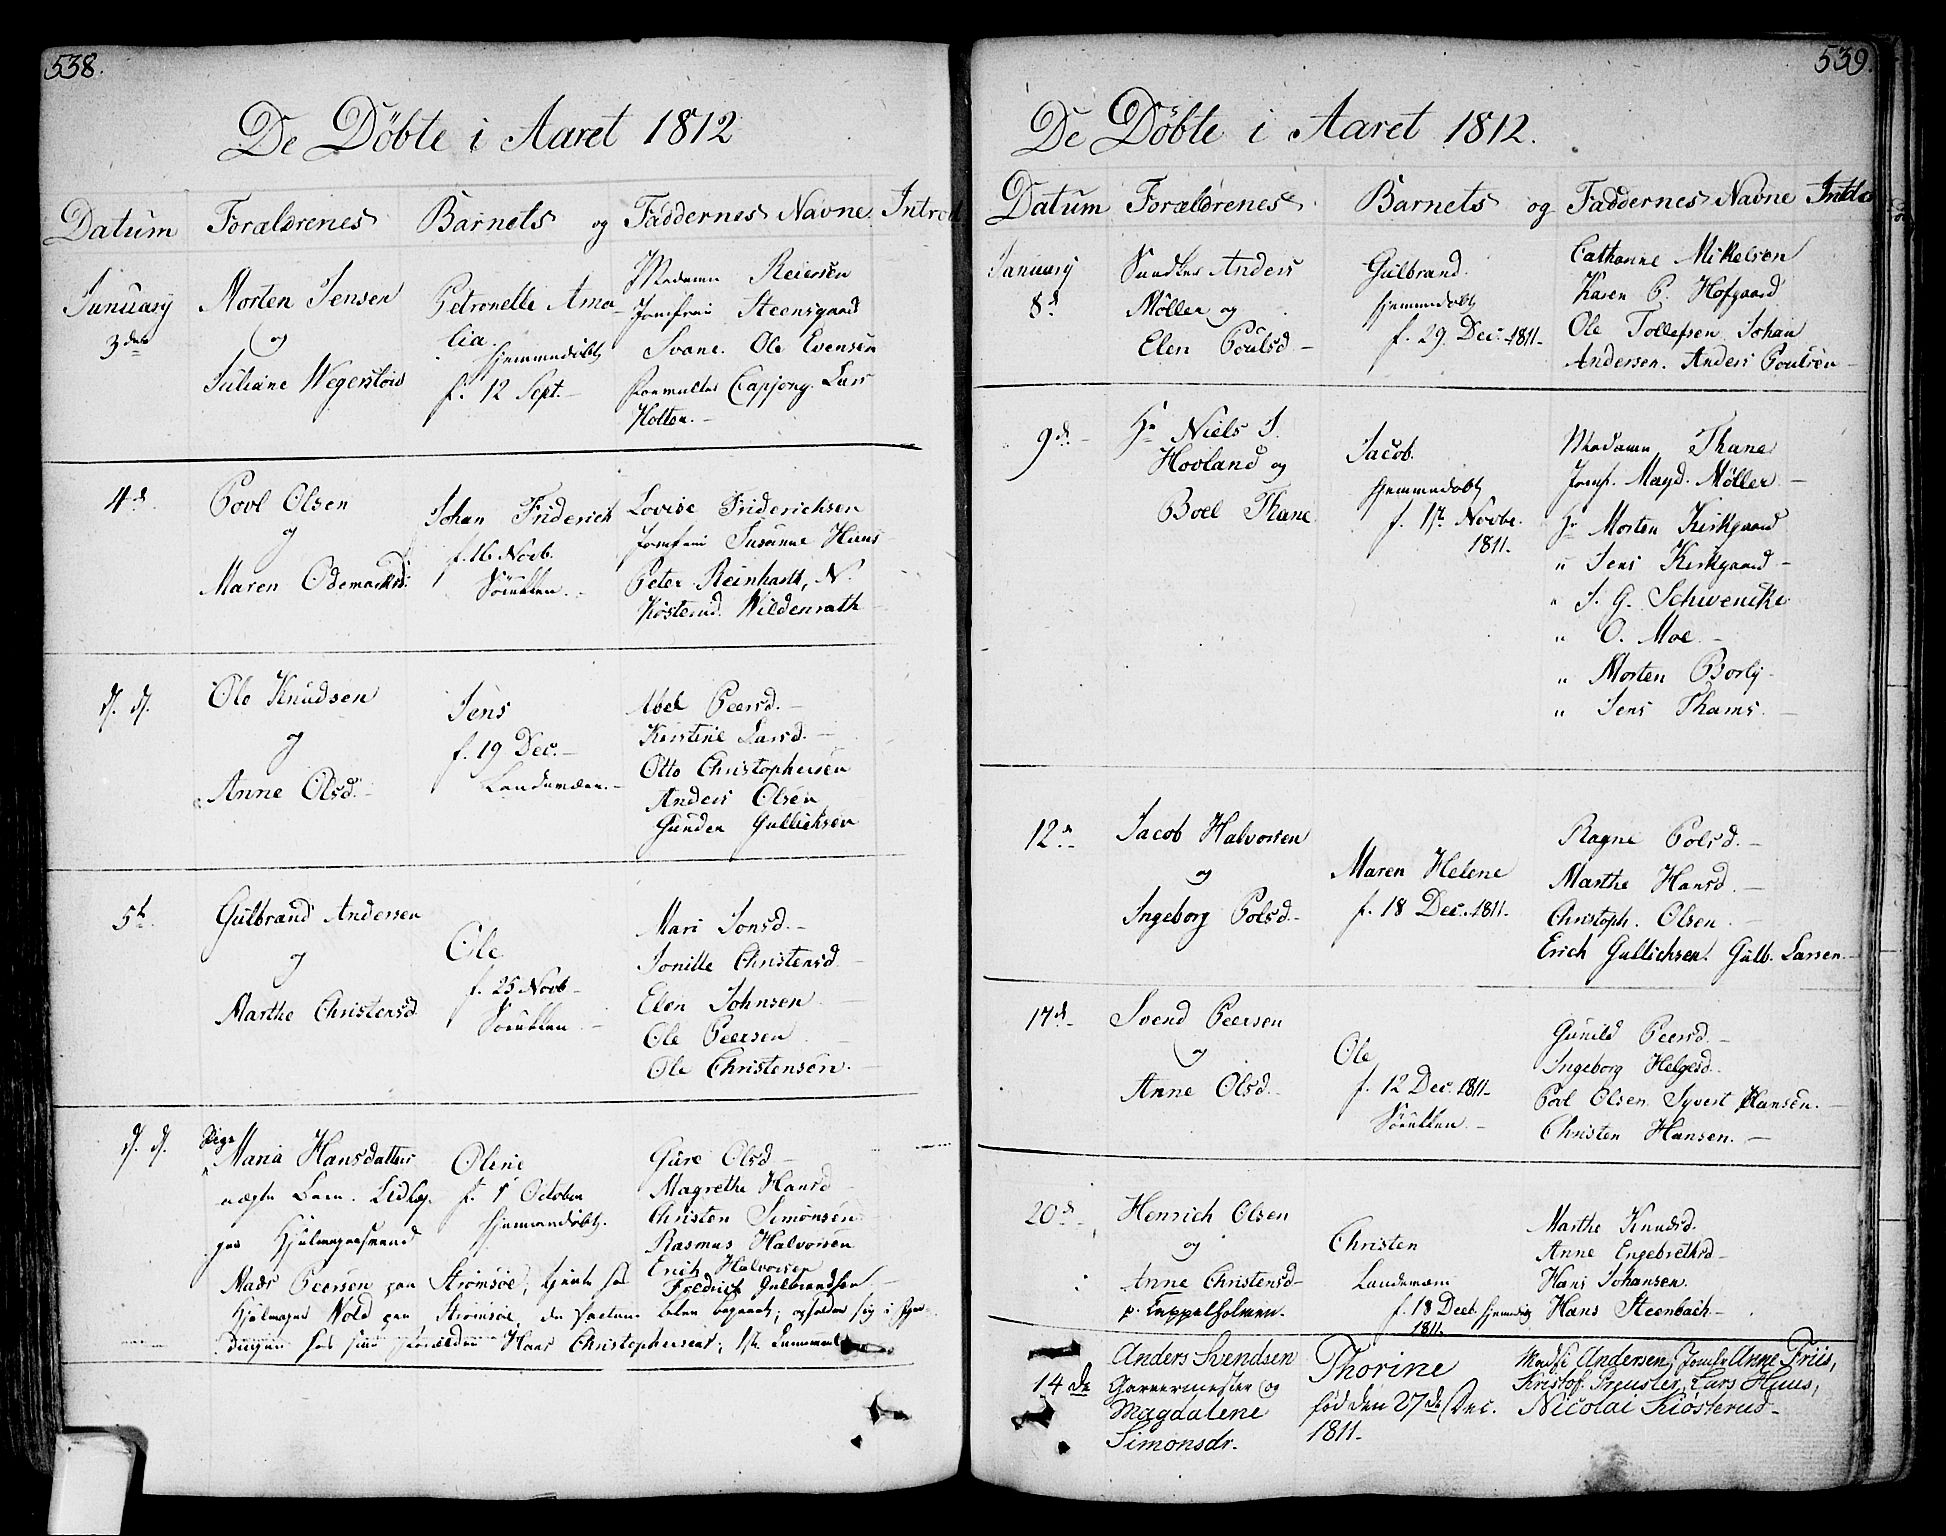 538.
De Döbte i Aaret 1812
Datum Forældrenes Barnets og Faddernes Navne Introd
January
3de
Morten Jensen
og
Juliane Wegersløis
Petronelle Ama-
lia.
hjemmedøbt
f. 12 Sept.
Madame Reiersen
Jomfrue Steensgaard
Svane. Ole Evensen
Capjong. Lars
Holter.
4d
Povl Olsen
og
Maren Odemarksd.
Johan Friderich
f. 16 Novb.
Lovise Friderichsen
Jomfrue Susanne Huus
Peter Reinhardt, N.
Kösterud. Wildenrath
d. d.
Ole Knudsen
og
Anne Olsd.
Jens
f. 19 Dec.
Landemærn.
Abel Peersd.
Kirstine Larsd.
Otto Christophersen
Anders Olsen
Gunder Gullichsen
5t
Gulbrand Andersen
og
Marthe Christensd
Ole
f. 25 Novb.
Mari Jonsd.
Jonille Christensd
Elen Johnsen
Ole Peersen
Ole Christensen.
d. d.
Pige
Maria Hansdatter
uægte Barn.
Oline
f. 1 October
hjemmedøbt.
Gure Olsd
Magrethe Hansd
Christen Simonsen
Rasmus Halvorsen
Erich Halvorsen
Mads Peersen paa Strömsöe, tiente hos Fredrich Gulbrandsen
Hold paa Strömsöe, opholder sig i
hos sine Forældre Hans Christophersen; 1ste
539.
De Döbte i Aaret 1812.
Datum Forældrenes Barnets og Faddernes Navne Intro
January
8d
Anders
Møller og
Elen Poulsd.
Gulbrand.
hjemmedøbt
f. 29 Dec. 1811.
Cathrine Mikelsen
Karen P. Hofgaard
Ole Tollefsen. Johan
Andersen. Anders Poulsen
9d.
Hr Niels J.
Hovland og
Boel Thane
Jacob.
hjemmedøbt
f. 17 Novbr.
1811.
Madame Thane
Jomf. Magd. Møller
Hr Morten Kirkgaard
" Jens Kirkgaard
" J. G. Schwencke
" O. Moe
" Morten Borly
" Jens Thams.
12d.
Jacob Halvorsen
og
Ingeborg Polsd.
Maren Helene
f. 18 Dec. 1811.
Ragne Polsd.
Marthe Hansd.
Christoph. Olsen.
Erich Gullichsen. Gulb. Larsen.
17d.
Svend Peersen
og
Anne Olsd.
Ole
f. 12 Dec. 1811.
Gunild Peersd.
Ingeborg Helgesd.
Pool Olsen Syvert Hansen.
Christen Hansen.
20d.
Henrich Olsen
og
Anne Christensd
p. Tappelholmen.
Christen
Landemærn
f. 18 Decb. hjemdøbt
1811.
Marthe Knudsd.
Anne Engebrethsd
Hans Johansen.
Hans Steenbach
14de
Anders Svendsen
Garvermester og
Magdalene
Simonsdr.
Thorine
född den 27de Dec.
1811.
Madse Andersen, Jomfr Anne Friis,
Kristof. Preusler, Lars Huus,
Nicolai Kiösterud.